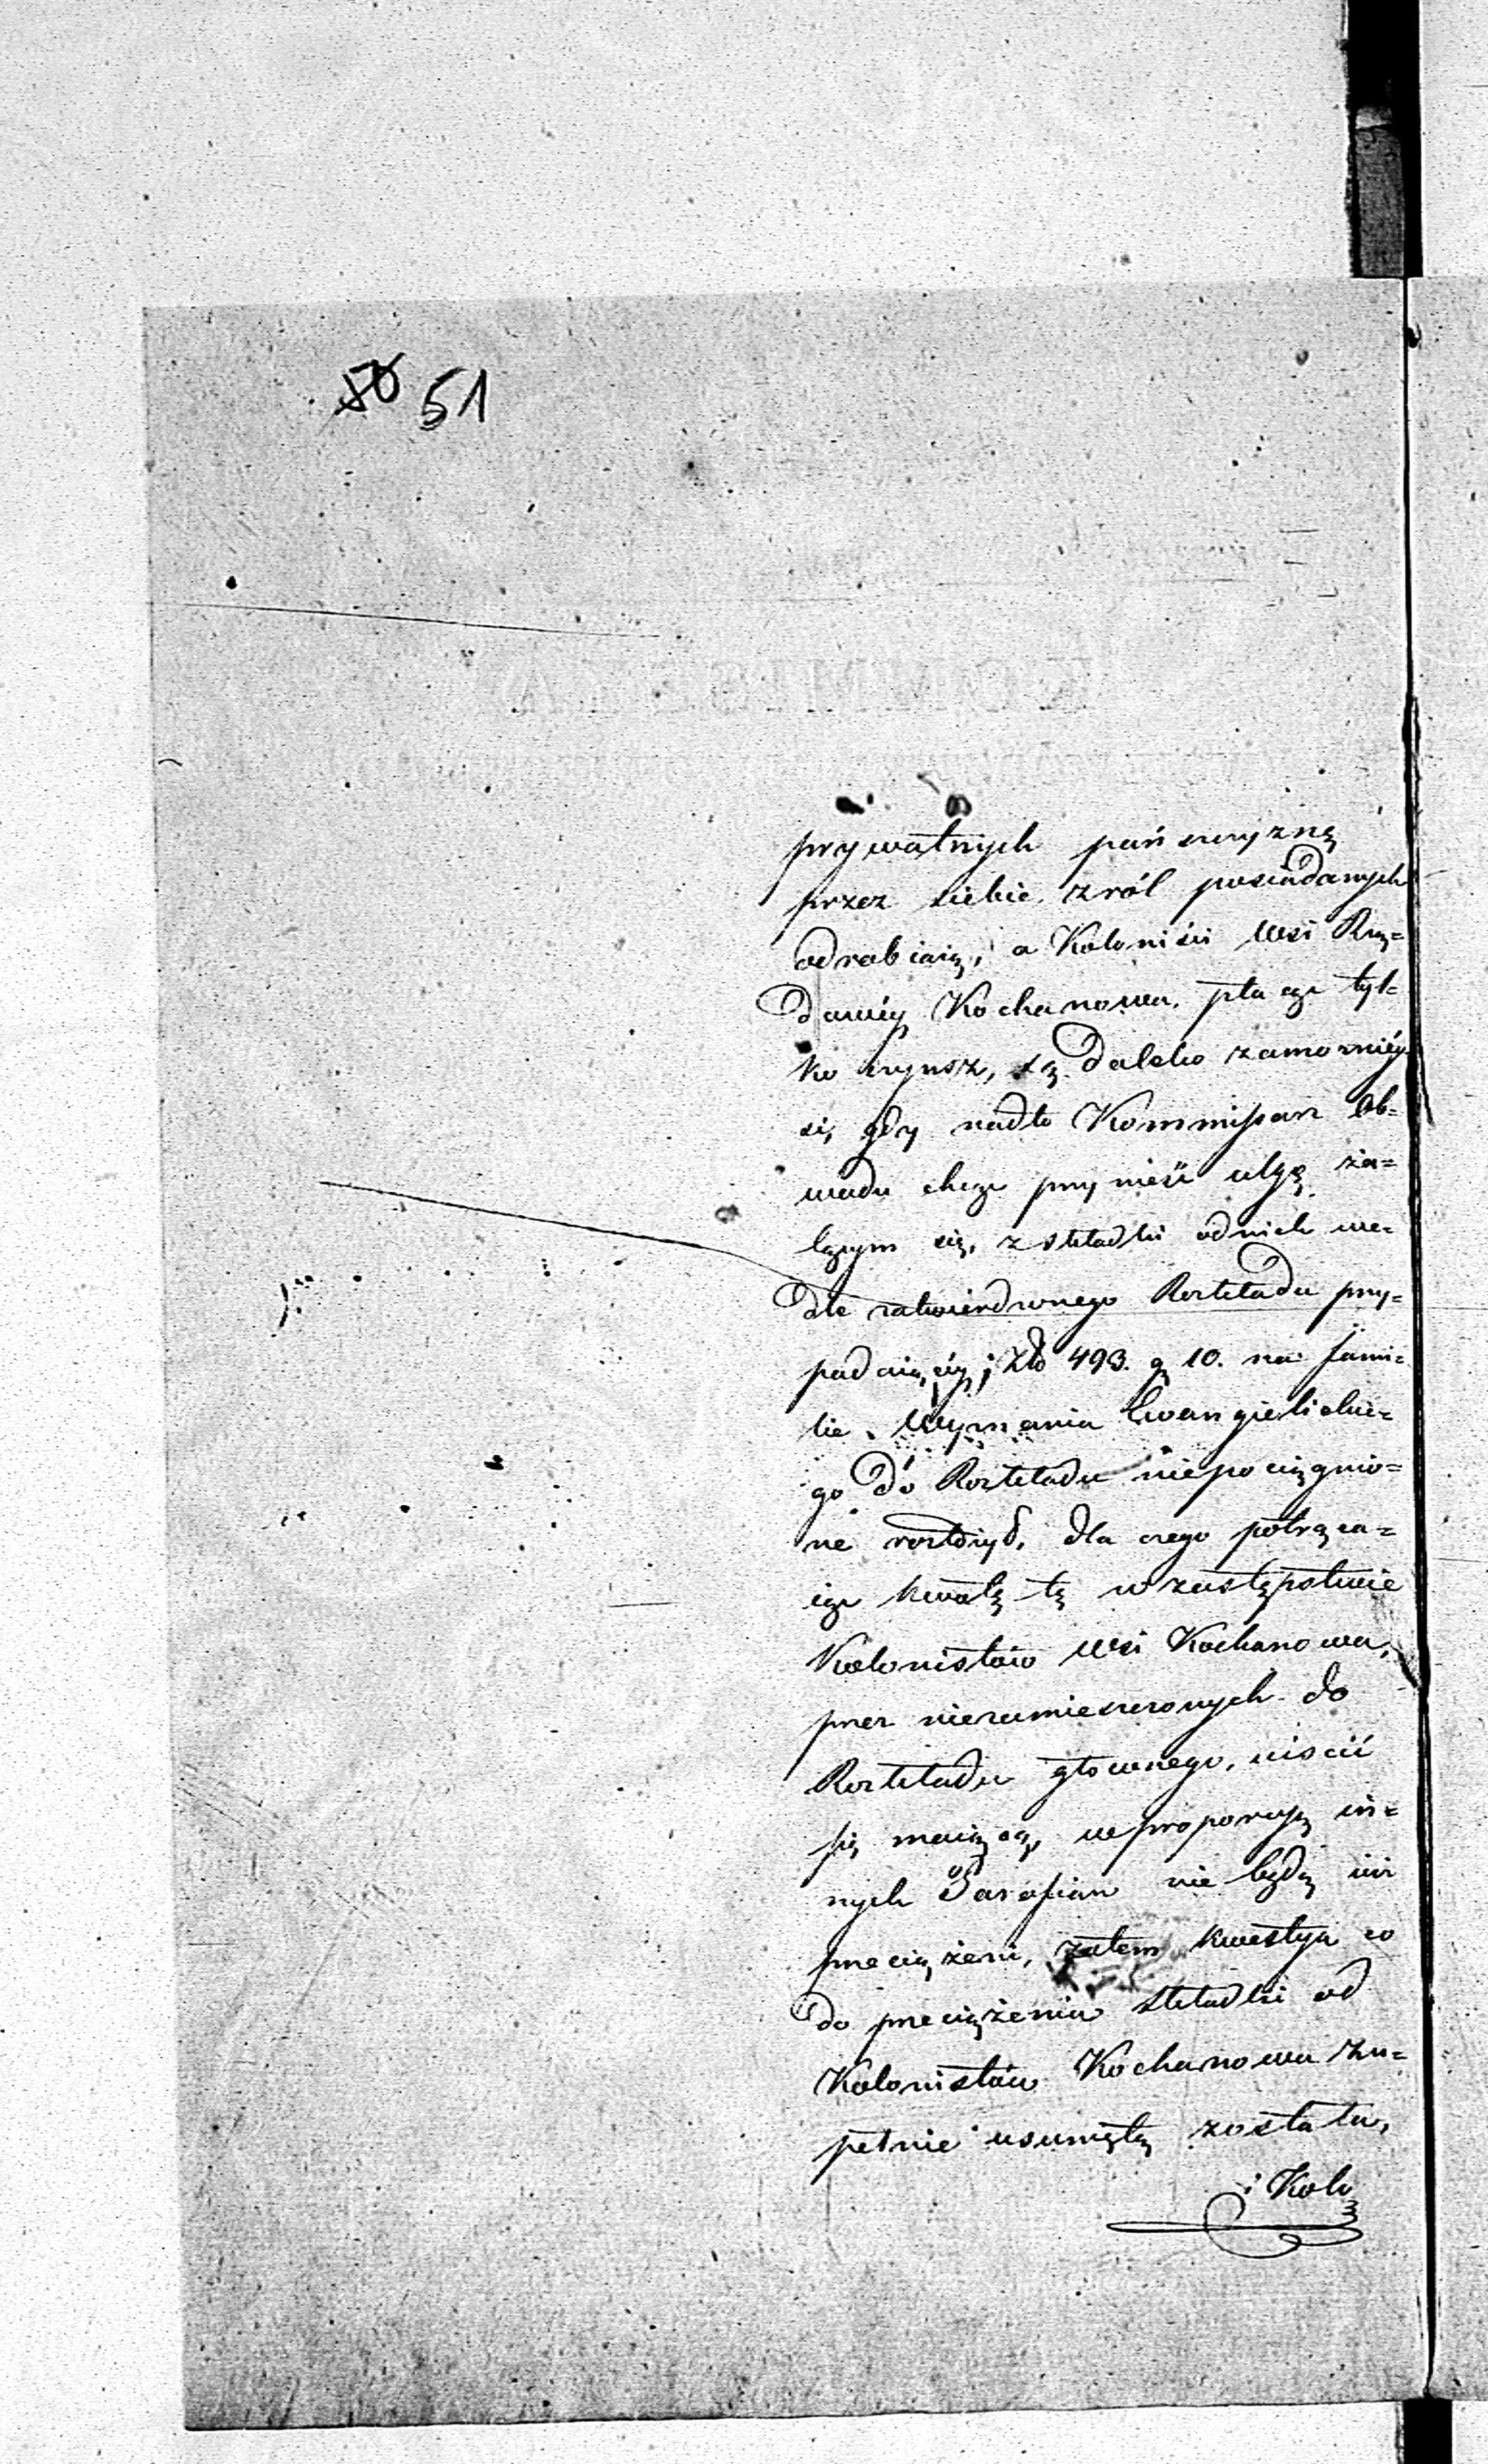 50 51
prywatnych pańszczyznę
przez siebie z ról posiadanych
odrabiaią, a Koloniści Wsi Rzą=
dowéy Kochanowa, płacąc tyl=
ko czynsz, są daleko zamożniéy
si, gdy nadto Kommissarz Ob=
wodu chcąc przynieść ulgę żа=
lącym się, z składki od nich we=
dle zatwierdzonego Rozkładu przy=
padaiącéy, Złp 493. g 10. na fami=
lie Wyznania Ewangielickie=
go do Rozkładu niepociągnio=
ne rozłożył, dla czego potrąca=
iąc kwotę tę w zastępstwie
Kolonistów Wsi Kochanowa,
przez niezamieszczonych do
Rozkładu głownego, uiścić
się maiącą, w proporcyą in=
nych Parafian nie będą iuż
przeciążeni, zatem kwestya co
do przeciążenia składki od
Kolonistów Kochanowa zu=
pełnie usuniętą została,
i Kolo